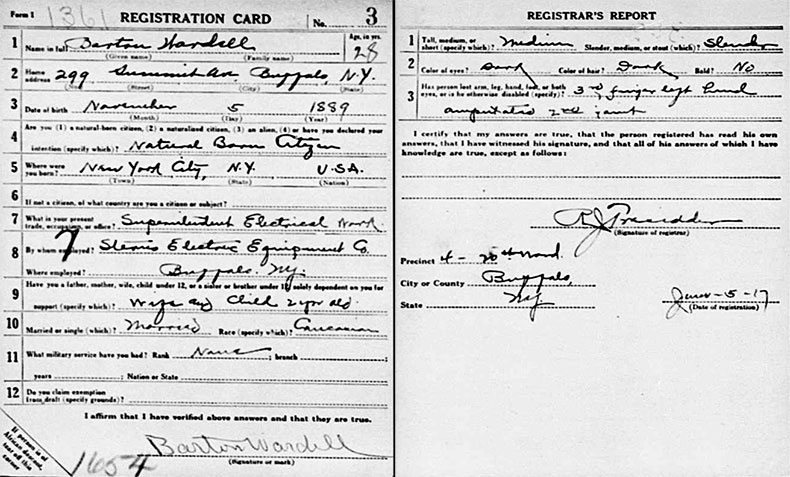 Form 1 1361 REGISTRATION CARD No. 3
1 Name in full Barton Wardell Age, in yrs. 28
(Given name) (Family name)
2 Home address 299 Summit Av. Buffalo, N.Y.
(No.) (Street) (City) (State)
3 Date of birth November 5 1889
(Month) (Day) (Year)
4 Are you (1) a natural-born citizen, (2) a naturalized citizen, (3) an alien, (4) or have you declared your
intention (specify which)? Natural Born Citizen
5 Where were you born? New York City, N.Y. U.S.A.
(Town) (State) (Nation)
6 If not a citizen, of what country are you a citizen or subject?
7 What is your present trade, occupation, or office? Superintendent Electrical Work
8 By whom employed? Stearns Electric Equipment Co
Where employed? Buffalo. N.y.
9 Have you a father, mother, wife, child under 12, or a sister or brother under 12, solely dependent on you for
support (specify which)? Wife and Child 2 yr old
10 Married or single (which)? Married Race (specify which)? Caucasian
11 What military service have you had? Rank None ; branch ;
years ; Nation or State
12 Do you claim exemption from draft (specify grounds)?
I affirm that I have verified above answers and that they are true.
Barton Wardell
(Signature or mark)
If person is of African descent, tear off this corner
1654
REGISTRAR'S REPORT
1 Tall, medium, or short (specify which)? Medium Slender, medium, or stout (which)? Slender
2 Color of eyes? Dark Color of hair? Dark Bald? No
3 Has person lost arm, leg, hand, foot, or both
eyes, or is he otherwise disabled (specify)? 3rd finger left hand
amputated 2nd joint
I certify that my answers are true, that the person registered has read his own
answers, that I have witnessed his signature, and that all of his answers of which I have
knowledge are true, except as follows:
R J
(Signature of registrar)
Precinct 4 - 20th Ward.
City or County Buffalo,
State N.y. June - 5 - 17
(Date of registration)